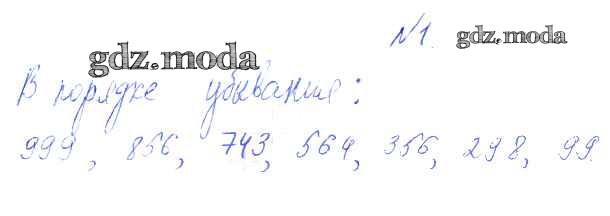 №1. gdz.moda
gdz.moda
В порядке убывания:
999, 856, 743, 564, 356, 298, 99.